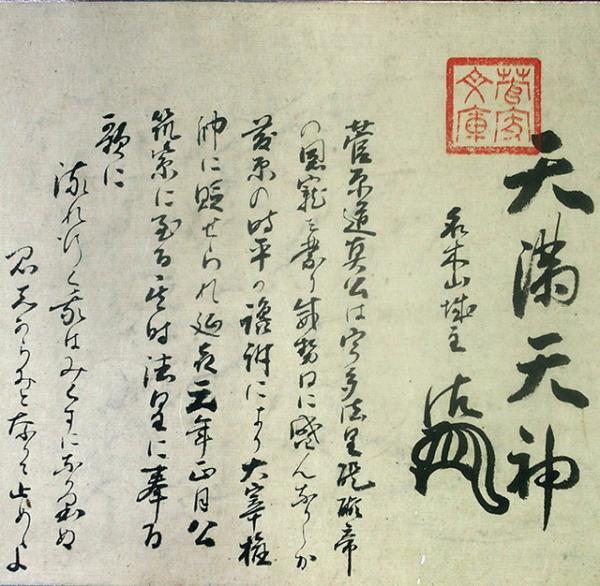 天満天神
菅家文庫
木山城主
菅原道真公は宇多法皇醍醐帝
の恩寵を蒙り威勢日に盛んなりしか
藤原の時平の讒訴により大宰権
帥に貶せられ延喜元年正月公
筑紫に至る其時法皇に奉る
歌に
流れ行く我はみくすになり果ぬ
君しからみとなりて止めよ